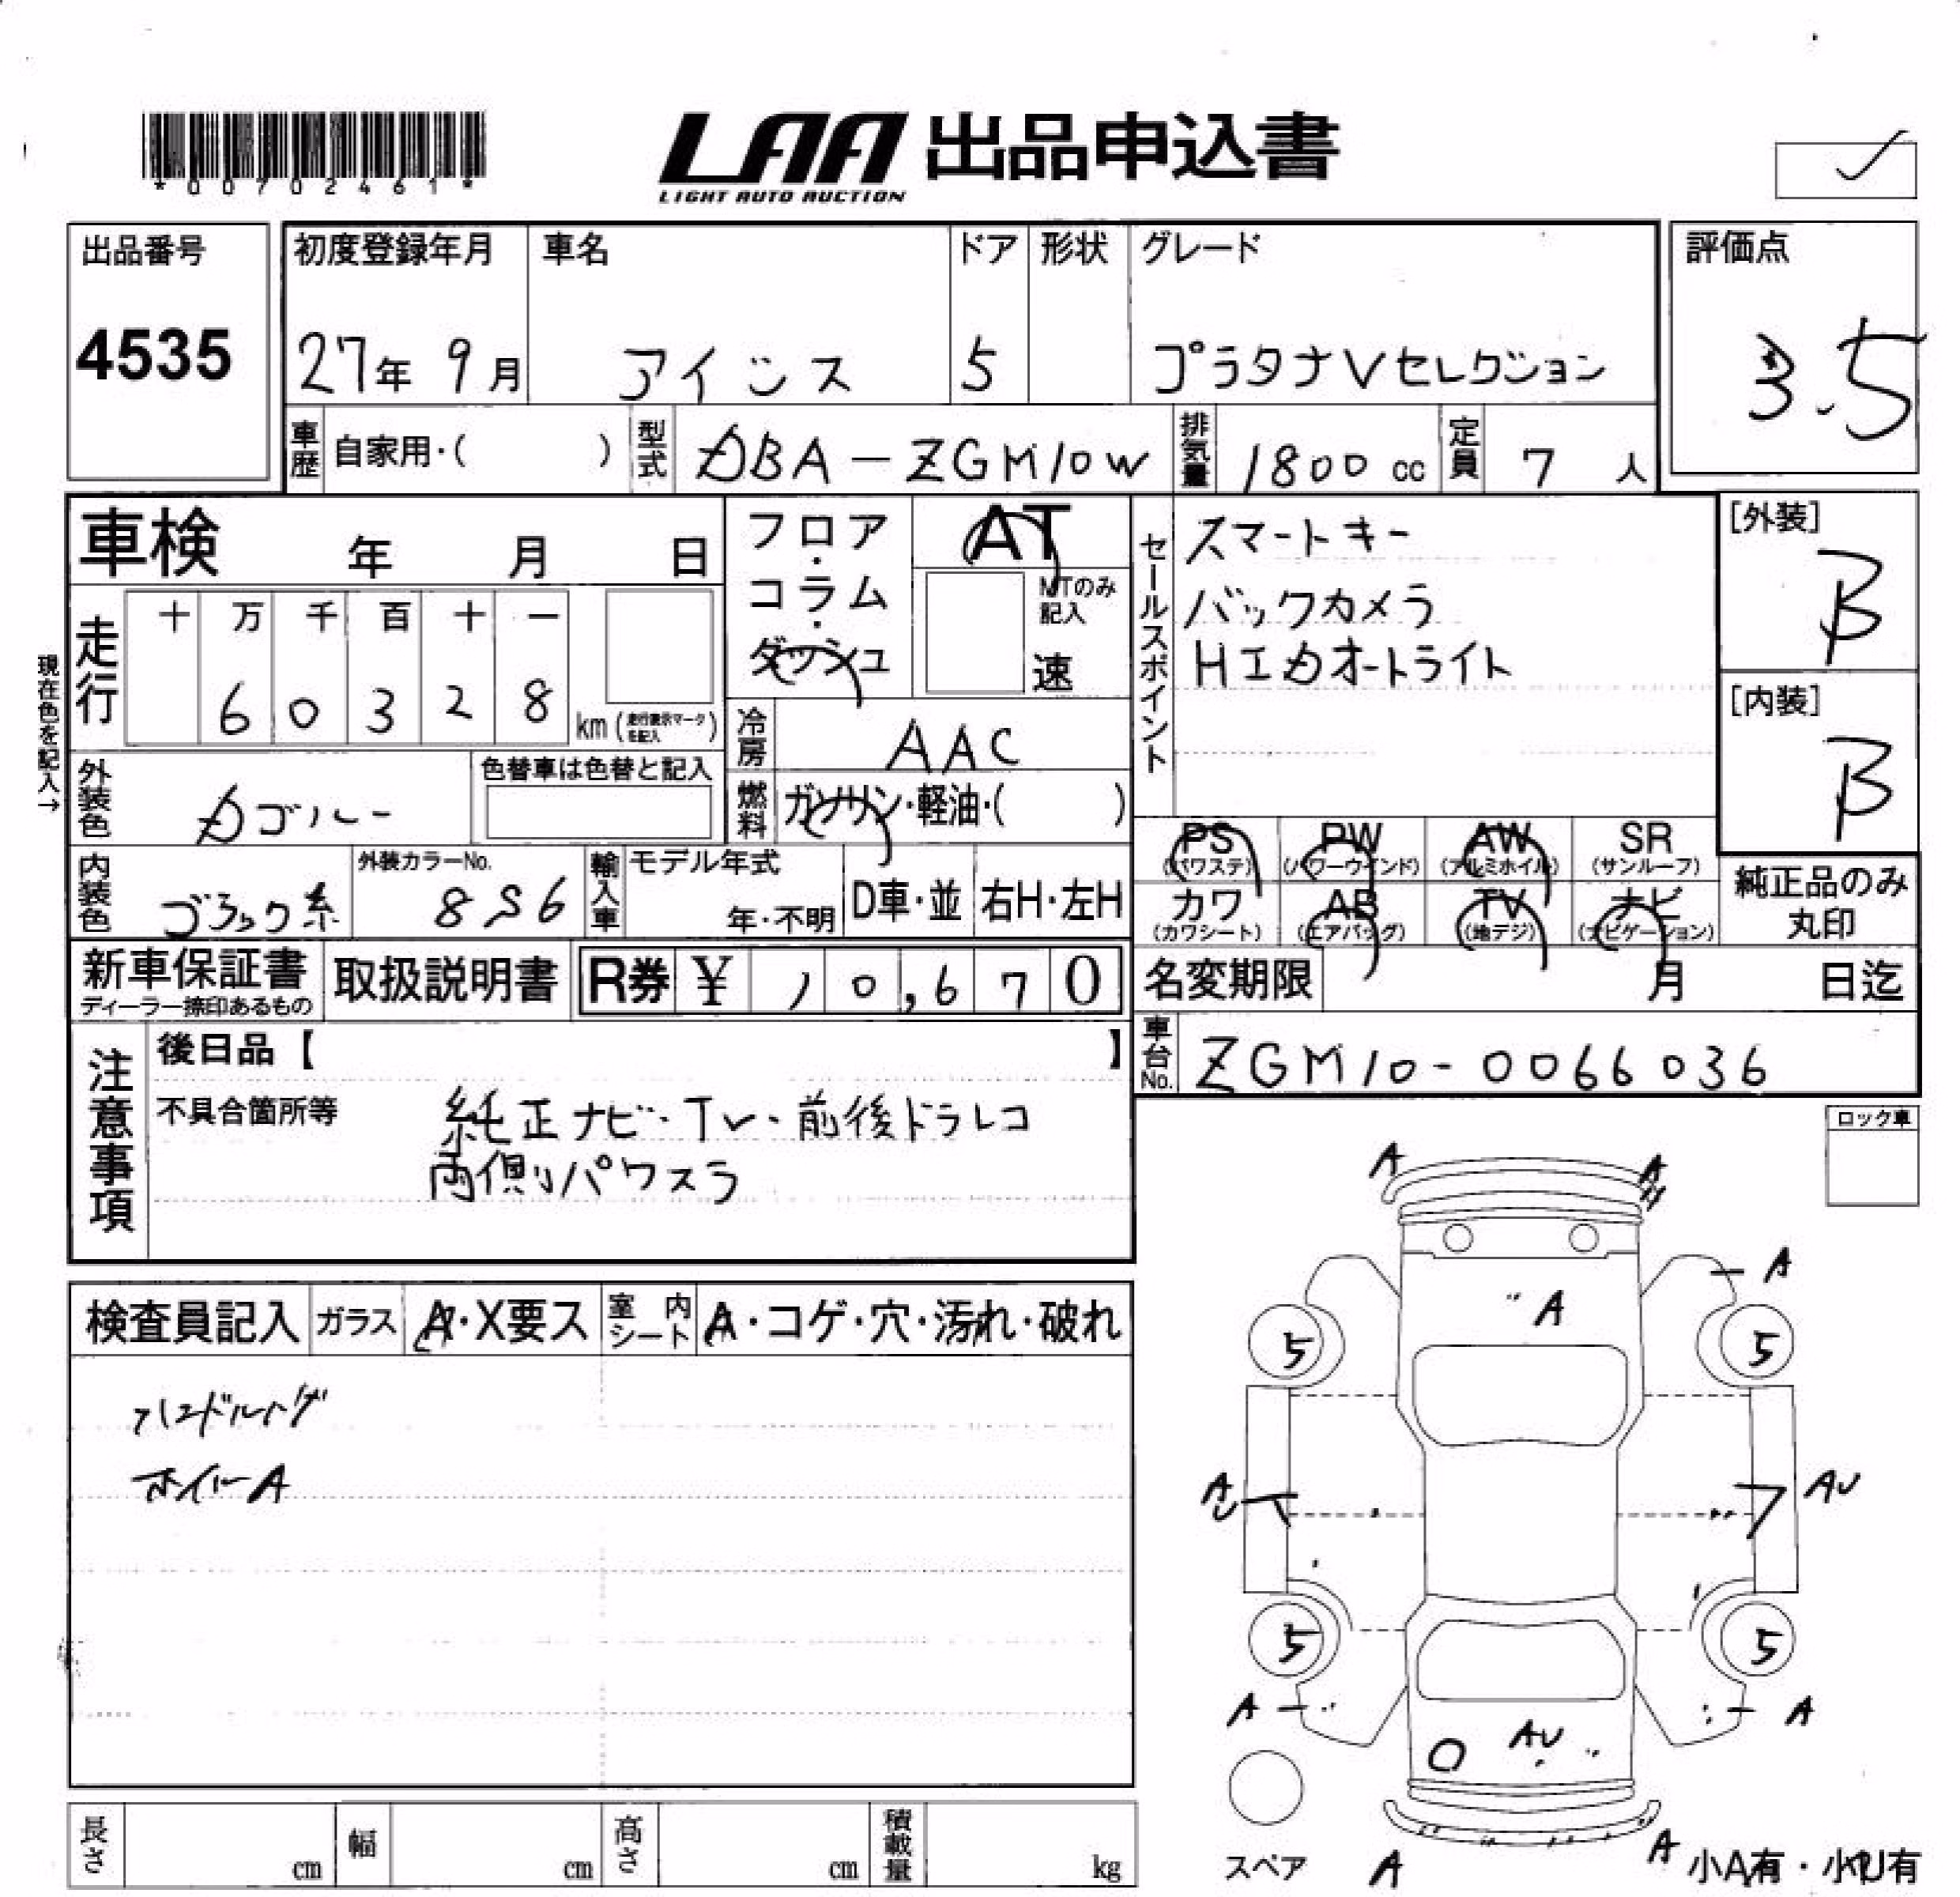 *00702461*
LAA 出品申込書
LIGHT AUTO AUCTION
出品番号
4535
初度登録年月
27年 9月
車名
アイシス
ドア
5
形状
グレード
プラタナVセレクション
評価点
3.5
車歴
自家用・( )
型式
DBA-ZGM10W
排気量
1800 cc
定員
7 人
車検 年 月 日
フロア・コラム・ダッシュ
AT
MTのみ記入
速
セールスポイント
スマートキー
バックカメラ
HIDオートライト
[外装]
B
[内装]
B
現在色を記入→
走行
十 万 千 百 十 一
6 0 3 2 8
km (走行表示マークを記入)
冷房
AAC
燃料
ガソリン・軽油・( )
外装色
Dブルー
色替車は色替と記入
内装色
ブラック系
外装カラーNo.
8S6
輸入車
モデル年式
年・不明
D車・並
右H・左H
PS (パワステ)
PW (パワーウインド)
AW (アルミホイル)
SR (サンルーフ)
カワ (カワシート)
AB (エアバッグ)
TV (地デジ)
ナビ (ナビゲーション)
純正品のみ
丸印
新車保証書
ディーラー捺印あるもの
取扱説明書
R券 ¥ 10,670
名変期限 月 日迄
車台No.
ZGM10-0066036
注意事項
後日品【 】
不具合箇所等
純正ナビ・TV・前後ドラレコ
両側パワスラ
ロック車
検査員記入
ガラス
A・X要ス
室内シート
A・コゲ・穴・汚れ・破れ
ホイルA
A
A
A
A
5
5
A U
AU
5
5
A
A
AU
スペア
A
A
小A有・小U有
長さ cm
幅 cm
高さ cm
積載量 kg